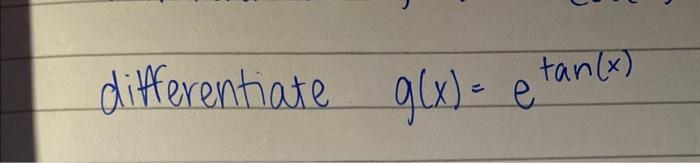 differentiate g(x) = e^tan(x)